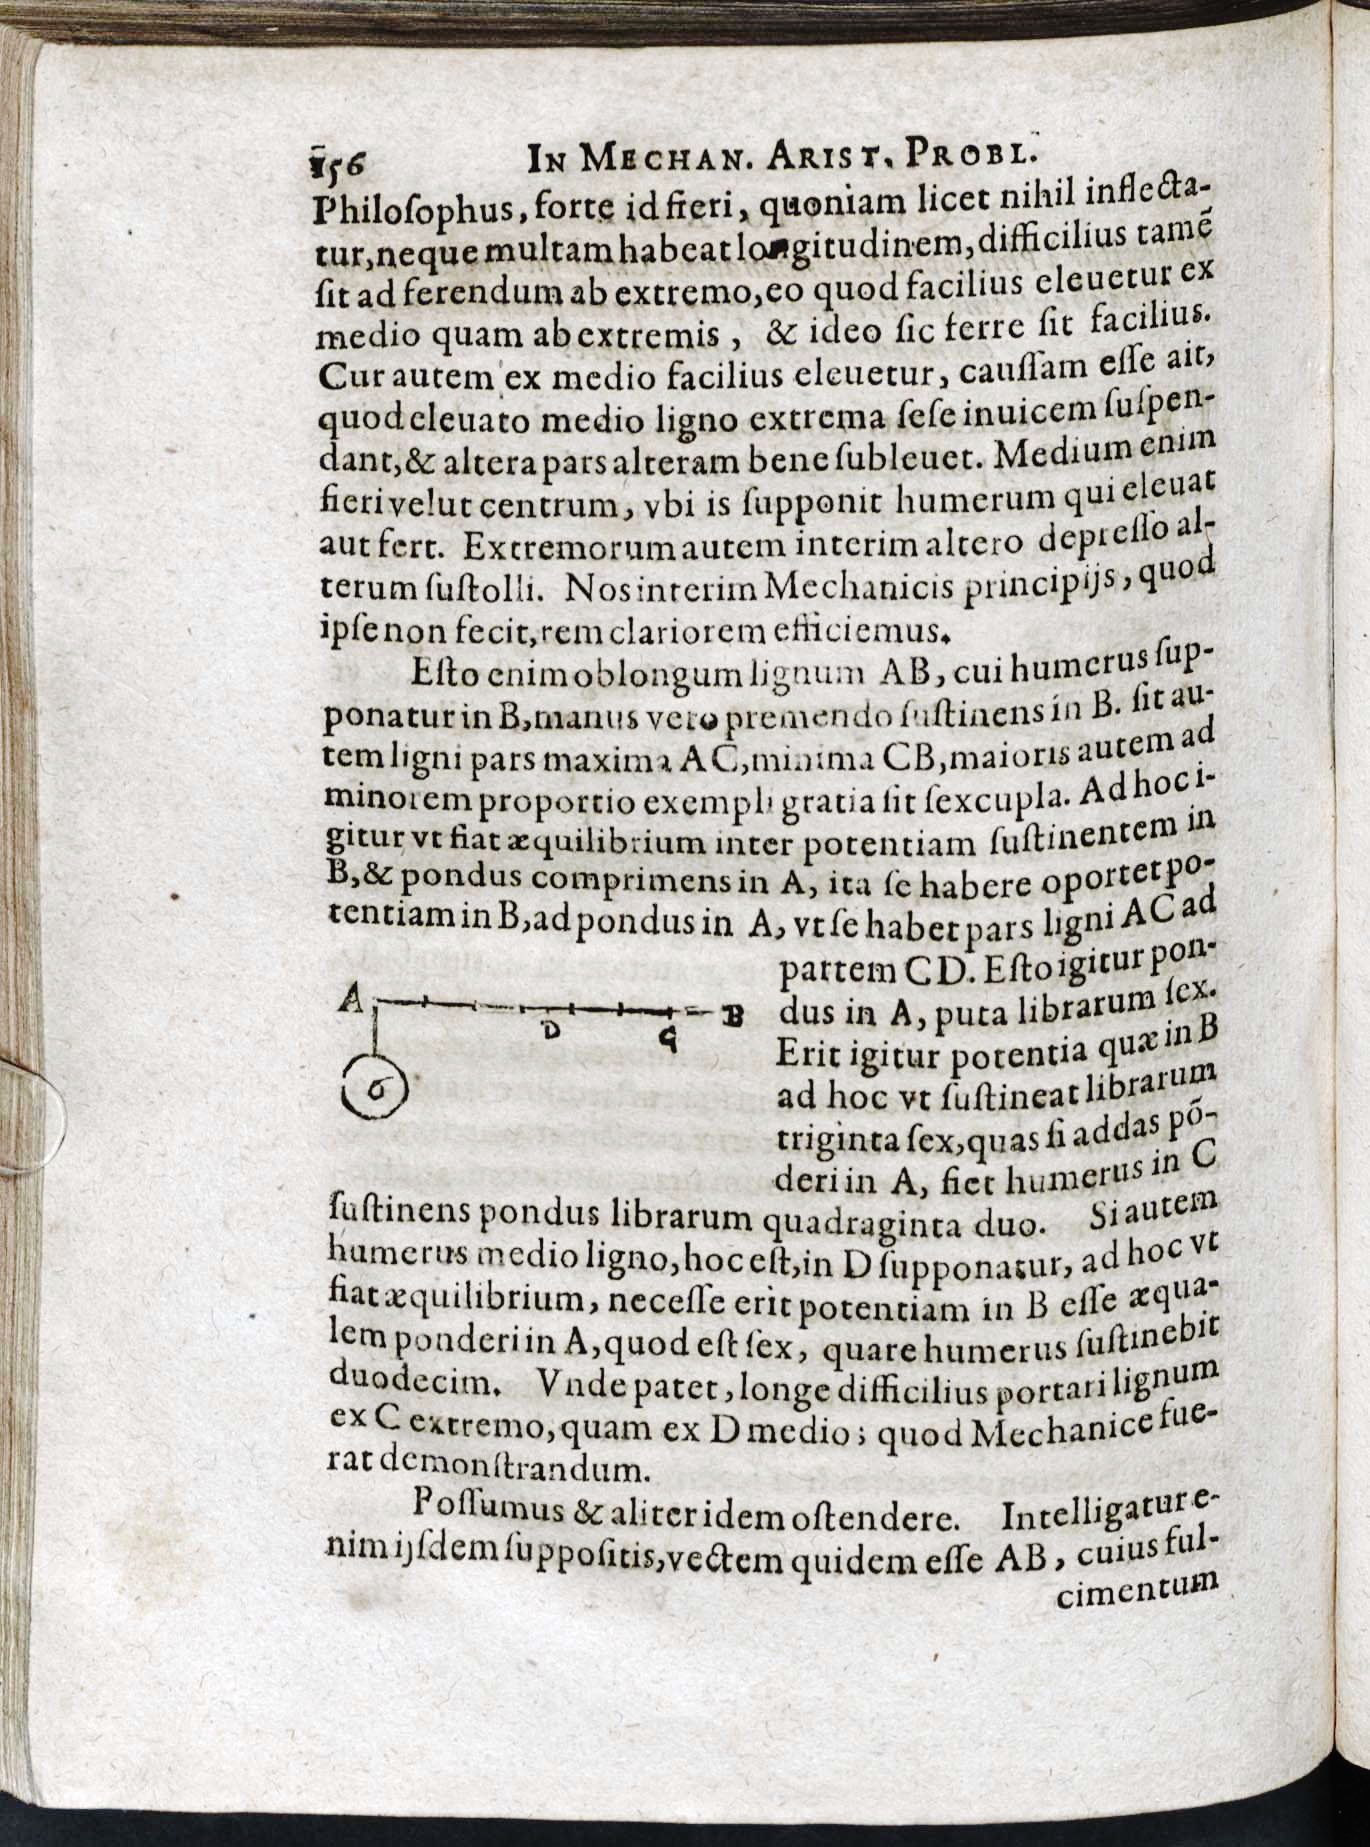 156 IN MECHAN. ARIST. PROBL.
Philoſophus, forte id fieri, quoniam licet nihil inflecta-
tur, neque multam habeat longitudinem, difficilius tamẽ
ſit ad ferendum ab extremo, eo quod facilius eleuetur ex
medio quam ab extremis, & ideo ſic ferre ſit facilius.
Cur autem ex medio facilius eleuetur, cauſſam eſſe ait,
quod eleuato medio ligno extrema ſeſe inuicem ſuſpen-
dant, & altera pars alteram bene ſubleuet. Medium enim
fieri velut centrum, vbi is ſupponit humerum qui eleuat
aut fert. Extremorum autem interim altero depreſſo al-
terum ſuſtolli. Nos interim Mechanicis principijs, quod
ipſe non fecit, rem clariorem efficiemus.
Eſto enim oblongum lignum AB, cui humerus ſup-
ponatur in B, manus vero premendo ſuſtinens in B. ſit au-
tem ligni pars maxima AC, minima CB, maioris autem ad
minorem proportio exempli gratia ſit ſexcupla. Ad hoc i-
gitur vt fiat æquilibrium inter potentiam ſuſtinentem in
B, & pondus comprimens in A, ita ſe habere oportet po-
tentiam in B, ad pondus in A, vt ſe habet pars ligni AC ad
partem CD. Eſto igitur pon-
dus in A, puta librarum ſex.
Erit igitur potentia quæ in B
ad hoc vt ſuſtineat librarum
triginta ſex, quas ſi addas põ-
deri in A, fiet humerus in C
A B
D C
6
ſuſtinens pondus librarum quadraginta duo. Si autem
humerus medio ligno, hoc eſt, in D ſupponatur, ad hoc vt
fiat æquilibrium, neceſſe erit potentiam in B eſſe æqua-
lem ponderi in A, quod eſt ſex, quare humerus ſuſtinebit
duodecim. Vnde patet, longe difficilius portari lignum
ex C extremo, quam ex D medio; quod Mechanice fue-
rat demonſtrandum.
Poſſumus & aliter idem oſtendere. Intelligatur e-
nim ijſdem ſuppoſitis, vectem quidem eſſe AB, cuius ful-
cimentum